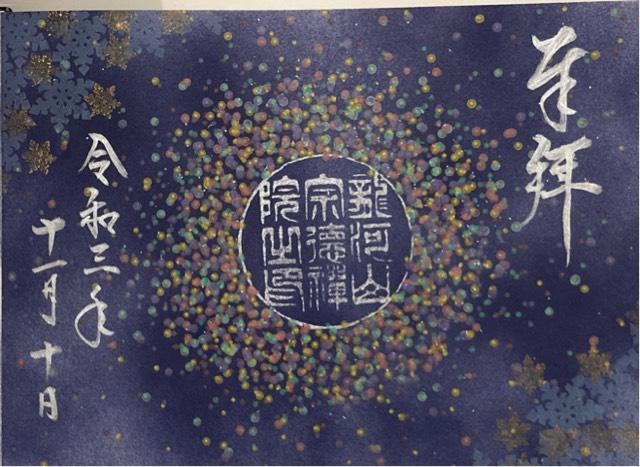 奉拜
龍河山
宗德禅
院之印
令和三年
十一月十日